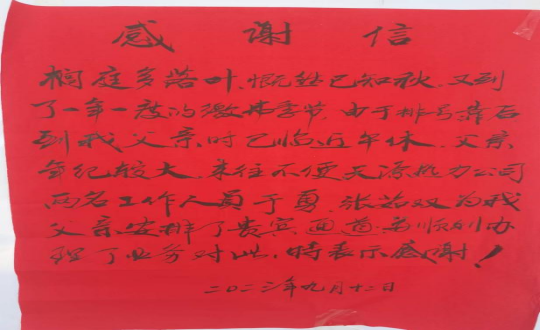 感谢信
桐庭多落叶,慨然已知秋,又到
了一年一度的缴费季节,由于排号靠后
到我父亲时已临近午休,父亲
年纪较大,来往不便天源热力公司
两名工作人员于勇,张茹双为我
父亲安排了贵宾通道,并顺利办
理了业务对此,特表示感谢!
二〇二三年九月十二日